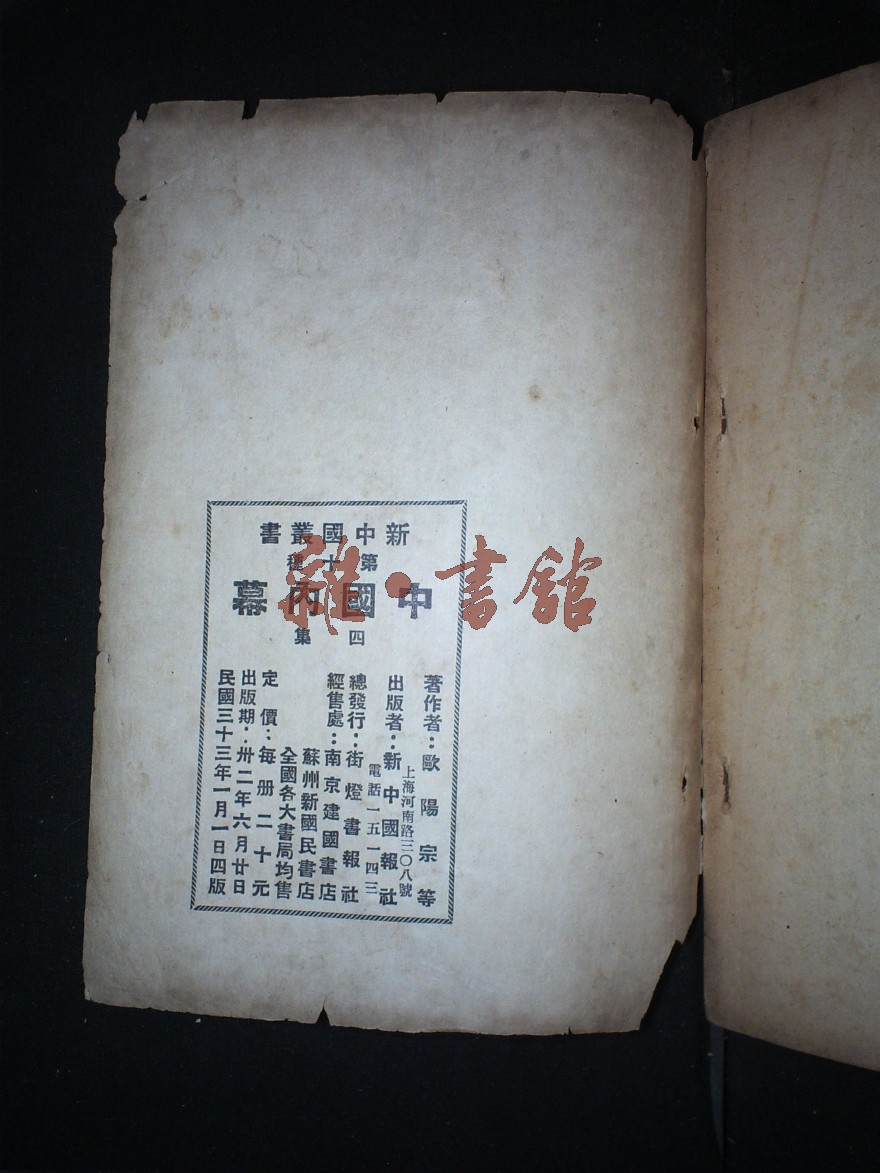 新中國叢書
第十種
中國內幕
四集
著作者：歐陽宗等
上海河南路三〇八號
出版者：新中國報社
電話一五一四三
總發行：街燈書報社
經售處：南京建國書店
蘇州新國民書店
全國各大書局均售
定價：每册二十元
出版期：卅二年六月廿日
民國三十三年一月一日四版
雜·書館